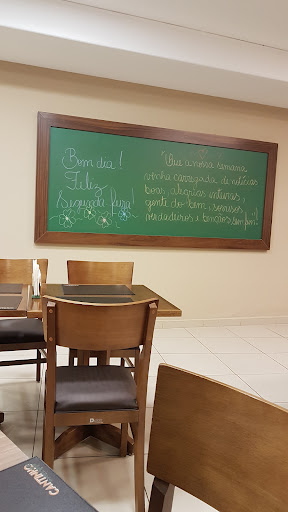 Bom dia!
Feliz
Segunda feira!
"Que a nossa semana
venha carregada de notícias
boas, alegrias inteiras,
gente do bem, sorrisos
verdadeiros e benções sem fim!"
CANTINHO